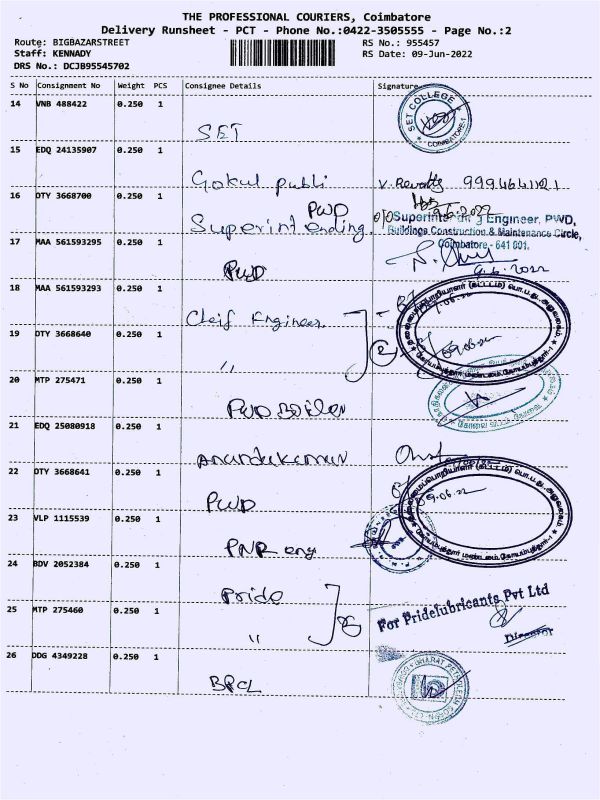 THE PROFESSIONAL COURIERS, Coimbatore
Delivery Runsheet - PCT - Phone No.:0422-3505555 - Page No.:2
Route: BIGBAZARSTREET
RS No.: 955457
Staff: KENNADY
RS Date: 09-Jun-2022
DRS No.: DCJB95545702
S No Consignment No Weight PCS Consignee Details Signature
14 VNB 488422 0.250 1
SET
SET COLLEGE
COIMBATORE-1
15 EDQ 24135907 0.250 1
Gokul publi V. Revathy
16 DTY 3668700 0.250 1
Superintending PWD
Superintending Engineer, PWD,
Buildings Construction & Maintenance Circle,
Coimbatore - 641 001.
17 MAA 561593295 0.250 1
PWD
18 MAA 561593293 0.250 1
Cheif Engineer
19 DTY 3668640 0.250 1
"
09.06.22
20 MTP 275471 0.250 1
PWD Boiler
21 EDQ 25080918 0.250 1
Anandakumar
22 DTY 3668641 0.250 1
PWD
09.06.22
23 VLP 1115539 0.250 1
PNR eng
24 BDV 2052384 0.250 1
Pride
25 MTP 275460 0.250 1
"
For Pridelubricants Pvt Ltd
Director
26 DDG 4349228 0.250 1
BPCL